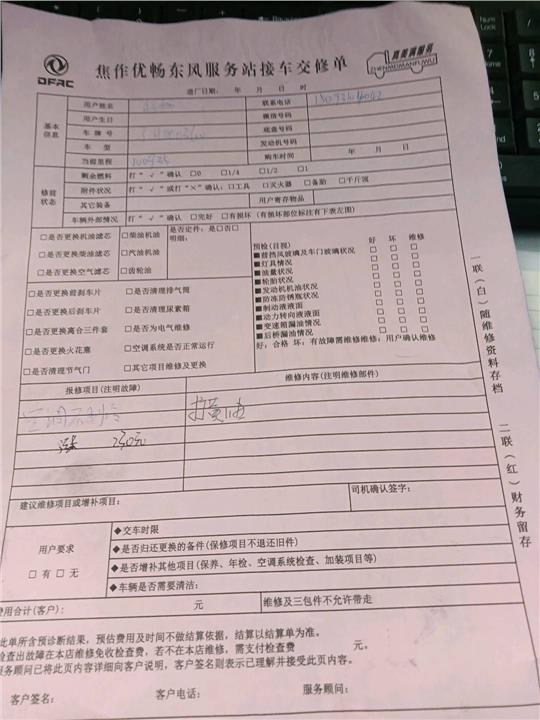 DFAC
焦作优畅东风服务站接车交修单
真美满服务
ZHENMEIMANFUWU
进厂日期： 年 月 日 时
基本信息
用户姓名 联系电话
用户生日 微信号码
车牌号 底盘号码
车型 发动机号码
当前里程 购车时间 年 月 日
修前状态
剩余燃料 打“√”确认 □0 □1/4 □1/2 □1
附件状况 打“√”或打“×”确认：□工具 □灭火器 □备胎 □千斤顶
其它装备 用户寄存物品
车辆外部情况 打“√”确认 □完好 □有损坏（有损坏部位标注有下表左图）
□是否更换机油滤芯 □柴油机油 是否定件：是□否□
□是否更换柴油滤芯 □汽油机油 明细：
□是否更换空气滤芯 □齿轮油
□是否更换前刹车片 □是否清理排气筒
□是否更换后刹车片 □是否清理尿素箱
□是否更换离合三件套 □是否为电气维修
□是否更换火花塞 □空调系统是否正常运行
□是否清理节气门 □其它项目维修及更换
预检(目视) 好 坏 维修
■前挡风玻璃及车门玻璃状况 □ □ □
■灯具情况 □ □ □
■油量状况 □ □ □
■轮胎状况 □ □ □
■发动机机油状况 □ □ □
■防冻防锈瓶状况 □ □ □
■制动液液面 □ □ □
■动力转向液液面 □ □ □
■变速箱漏油情况 □ □ □
■后桥漏油情况 □ □ □
好：合格 坏：有故障需维修维修；用户确认维修
报修项目(注明故障) 维修内容(注明维修部件)
空调不制冷 打黄油
230元
建议维修项目或增补项目：
司机确认签字：
用户要求
□有 □无
◆交车时限
◆是否归还更换的备件(保修项目不退还旧件)
◆是否增补其他项目(保养、年检、空调系统检查、加装项目等)
◆车辆是否需要清洁：
费用合计(客户)： 元 维修及三包件不允许带走
此单所含预诊断结果，预估费用及时间不做结算依据，结算以结算单为准。
检查出故障在本店维修免收检查费，若不在本店维修，需支付检查费 元。
服务顾问已将此页内容详细向客户说明，客户签名则表示已理解并接受此页内容。
客户签名： 客户电话： 服务顾问：
一联(白)随维修资料存档
二联(红)财务留存